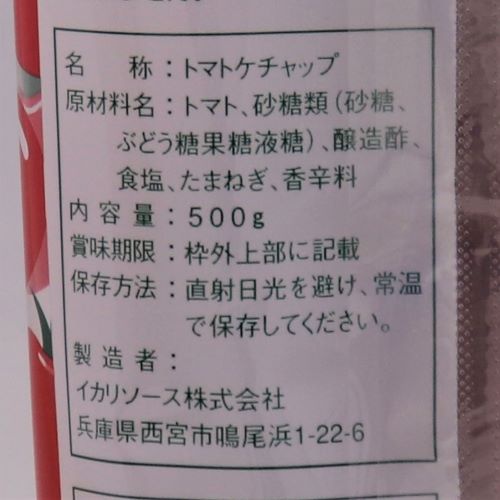 名　称：トマトケチャップ
原材料名：トマト、砂糖類（砂糖、
ぶどう糖果糖液糖）、醸造酢、
食塩、たまねぎ、香辛料
内容量：500g
賞味期限：枠外上部に記載
保存方法：直射日光を避け、常温
で保存してください。
製造者：
イカリソース株式会社
兵庫県西宮市鳴尾浜1-22-6